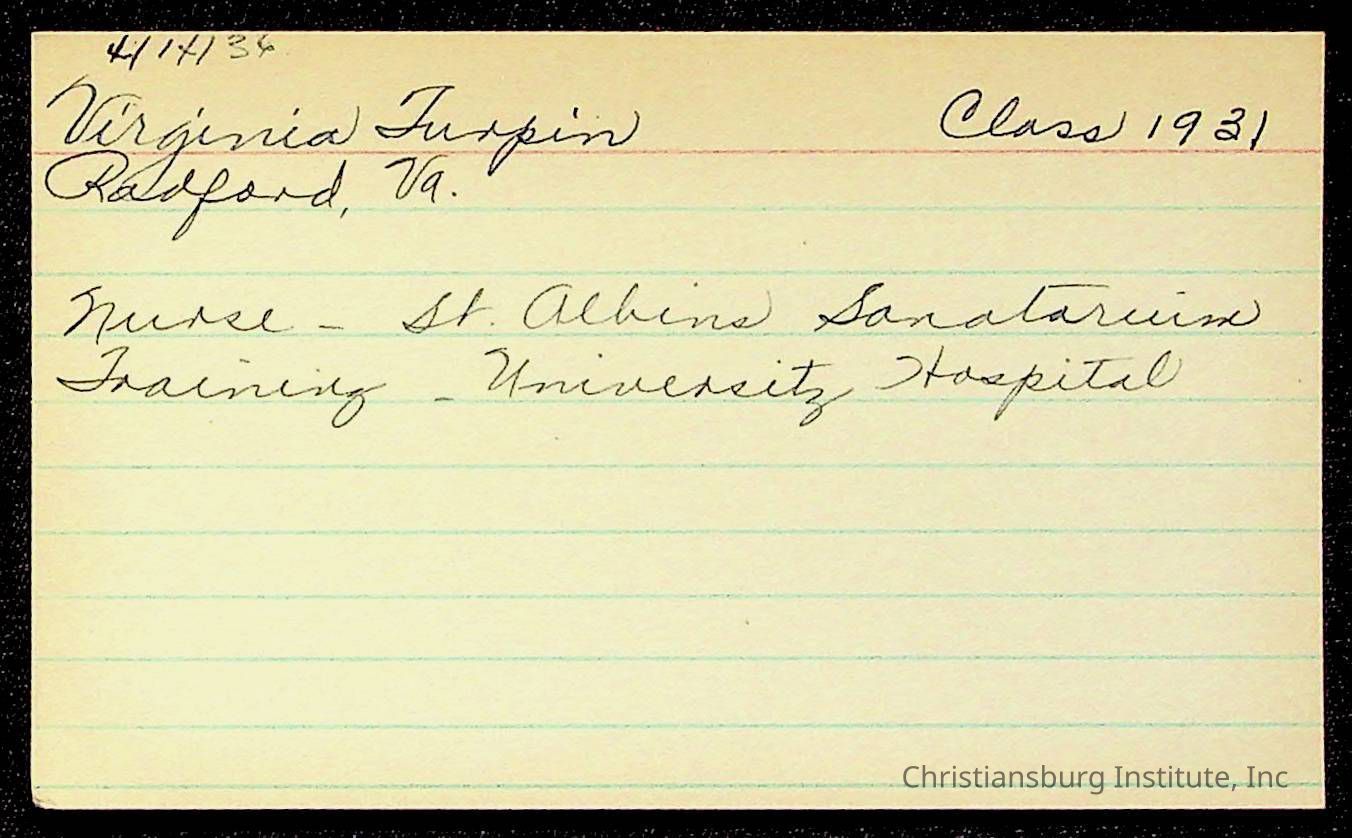 4/14/36
Virginia Turpin Class 1931
Radford, Va.
Nurse - St. Albins Sanatarium
Training - University Hospital
Christiansburg Institute, Inc